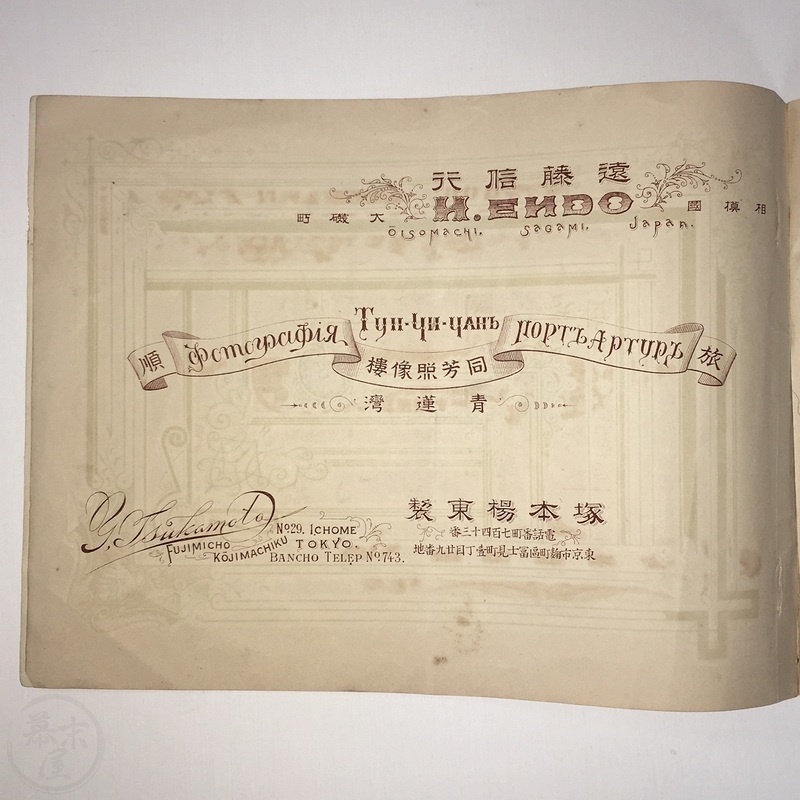 遠藤信行
H. ENDO
相模國 大磯町
ŌISOMACHI, SAGAMI, JAPAN.
旅順
Фотографія Тун-Чи-Чанъ Портъ Артуръ
同芳照像樓
青蓮灣
G. Tsukamoto
No29. ICHOME
FUJIMICHO
KŌJIMACHIKU TOKYO.
BANCHO TELEP No.743.
塚本楊東製
電話番町七百四十三番
東京市麹町區冨士見町壹丁目廿九番地
幕末屋